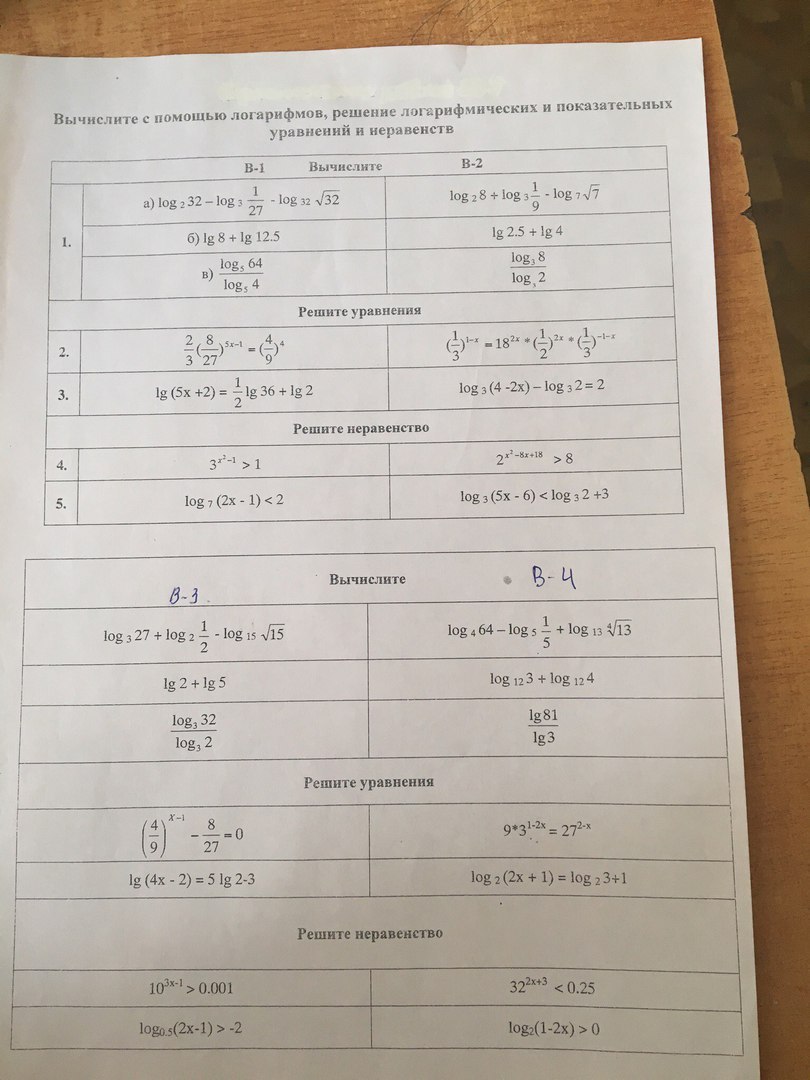 Вычислите с помощью логарифмов, решение логарифмических и показательных
уравнений и неравенств
В-1 Вычислите В-2
1.
а) log ₂ 32 – log ₃ 1/27 - log ₃₂ √32
log ₂ 8 ÷ log ₃ 1/9 - log ₇ √7
б) lg 8 + lg 12.5
lg 2.5 + lg 4
в) log₅ 64 / log₅ 4
log₃ 8 / log₃ 2
Решите уравнения
2.
2/3 (8/27)^(5x−1) = (4/9)^4
(1/3)^(1−x) = 18^(2x) * (1/2)^(2x) * (1/3)^(−1−x)
3.
lg (5x +2) = 1/2 lg 36 + lg 2
log ₃ (4 -2x) – log ₃ 2 = 2
Решите неравенство
4.
3^(x²−1) > 1
2^(x²−8x+18) > 8
5.
log ₇ (2x - 1) < 2
log ₃ (5x - 6) < log ₃ 2 +3
Вычислите
В-3
В-4
log ₃ 27 + log ₂ 1/2 - log ₁₅ √15
log ₄ 64 – log ₅ 1/5 + log ₁₃ ⁴√13
lg 2 + lg 5
log ₁₂ 3 + log ₁₂ 4
log₃ 32 / log₃ 2
lg 81 / lg 3
Решите уравнения
(4/9)^(X−1) − 8/27 = 0
9*3^(1-2x) = 27^(2-x)
lg (4x - 2) = 5 lg 2-3
log ₂ (2x + 1) = log ₂ 3+1
Решите неравенство
10^(3x-1) > 0.001
32^(2x+3) < 0.25
log₀.₅(2x-1) > -2
log₂(1-2x) > 0